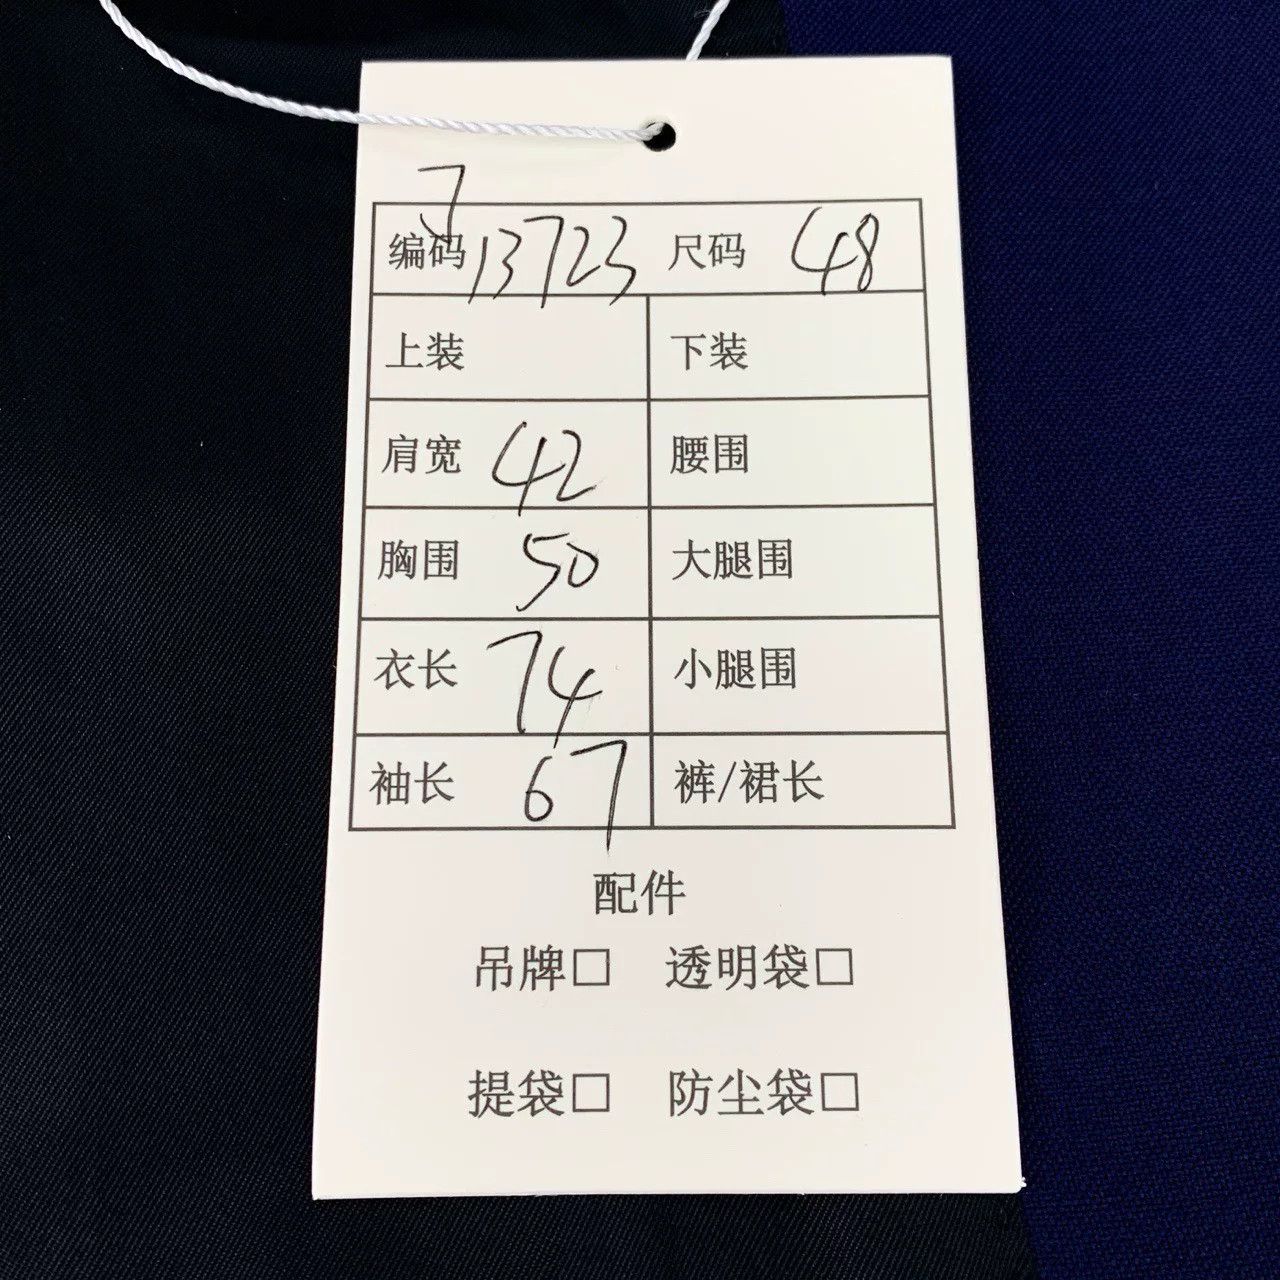 J
编码 13723 尺码 48
上装 下装
肩宽 42 腰围
胸围 50 大腿围
衣长 74 小腿围
袖长 67 裤/裙长
配件
吊牌□ 透明袋□
提袋□ 防尘袋□